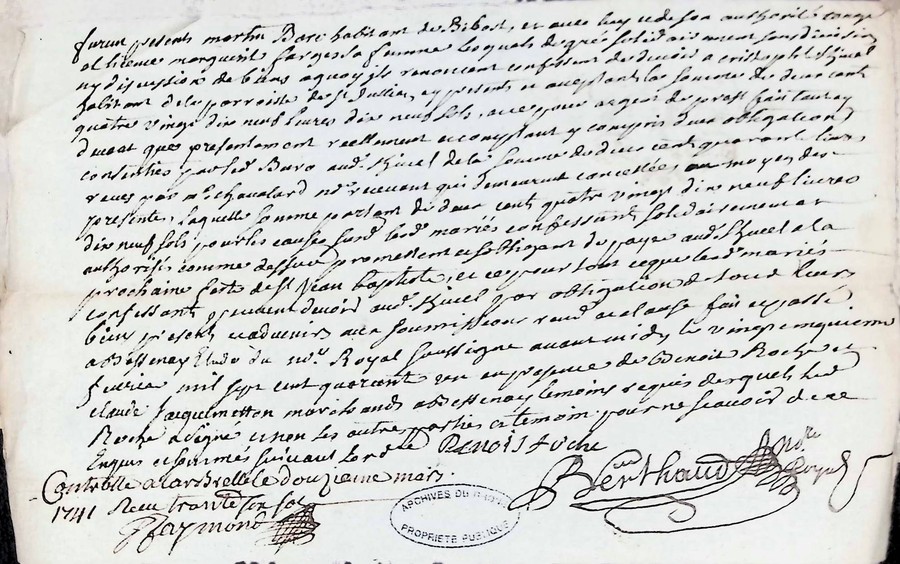 furent presents martin Baro habitant de Bibost, et avec luy et de son authorité conge
et licence marguerite farges sa femme lesquels de gré solidairement sans division
ny discussion de biens a quoy ils renoncent confessent de devoir a cristophle
habitant de la parroisse de st Jullien, cy present et acceptant la somme de deux cent
quatre vingt dix neuf livres dix neuf sols, avec pur argent de prest fait tant cy
devant que presentement reellement et comptant y compris deux obligations
consenties par led. Baro aud. de la somme de deux cent quarante livres
receues par me chavalard nore recevant qui demeurent cancellées, au moyen des
presentes, laquelle somme partant de deux cent quatre vingt dix neuf livres
dix neuf sols pour les causes susd. lesd. mariés confessant solidairement et
authorisés comme dessus promettent et s'obligent de payer aud. a la
prochaine feste de st Jean baptiste, et ce pour tout ce que lesd. mariés
confessant peuvent devoir aud. par obligation de tous leurs
biens presents et advenirs aux soumissions renon. et clauses fait et passé
a Bessenay Etude du nore Royal soussigné avant midy le vingt cinquieme
fevrier mil sept cent quarante un en presence de Benoit Roche et
claude Jacquemetton marchands a Bessenay temoins requis desquels led.
Roche a signé et non les autres parties et temoin pour ne scavoir de ce
Enquis et sommés suivant lord.ce Benoist Roche
Berthaud nore Royal
Controllé a Larbrelle le douzieme mars
1741 Receu trente six sols
Raymond
ARCHIVES DU RHÔNE
PROPRIETE PUBLIQUE